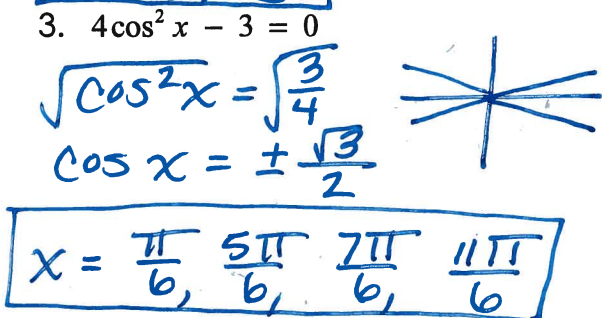 3. 4cos² x − 3 = 0
√cos²x = √3/4
cos x = ± √3/2
x = π/6, 5π/6, 7π/6, 11π/6